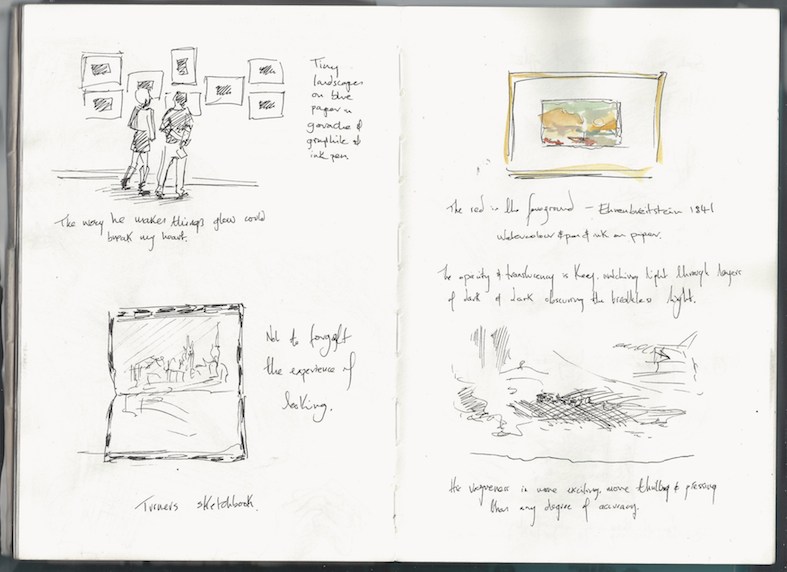 Tiny
landscapes
on blue
paper in
gouache &
graphite &
ink pen
The way he makes things glow could
break my heart.
Not to forget
the experience of
looking.
Turners sketchbook.
The red in the foreground – Ehrenbreitstein 1841
Watercolour & pen & ink on paper.
The opacity & translucency is key. watching light through layers
of dark & dark obscuring the light.
His vagueness is more exciting, more thrilling & pressing
than any degree of accuracy.